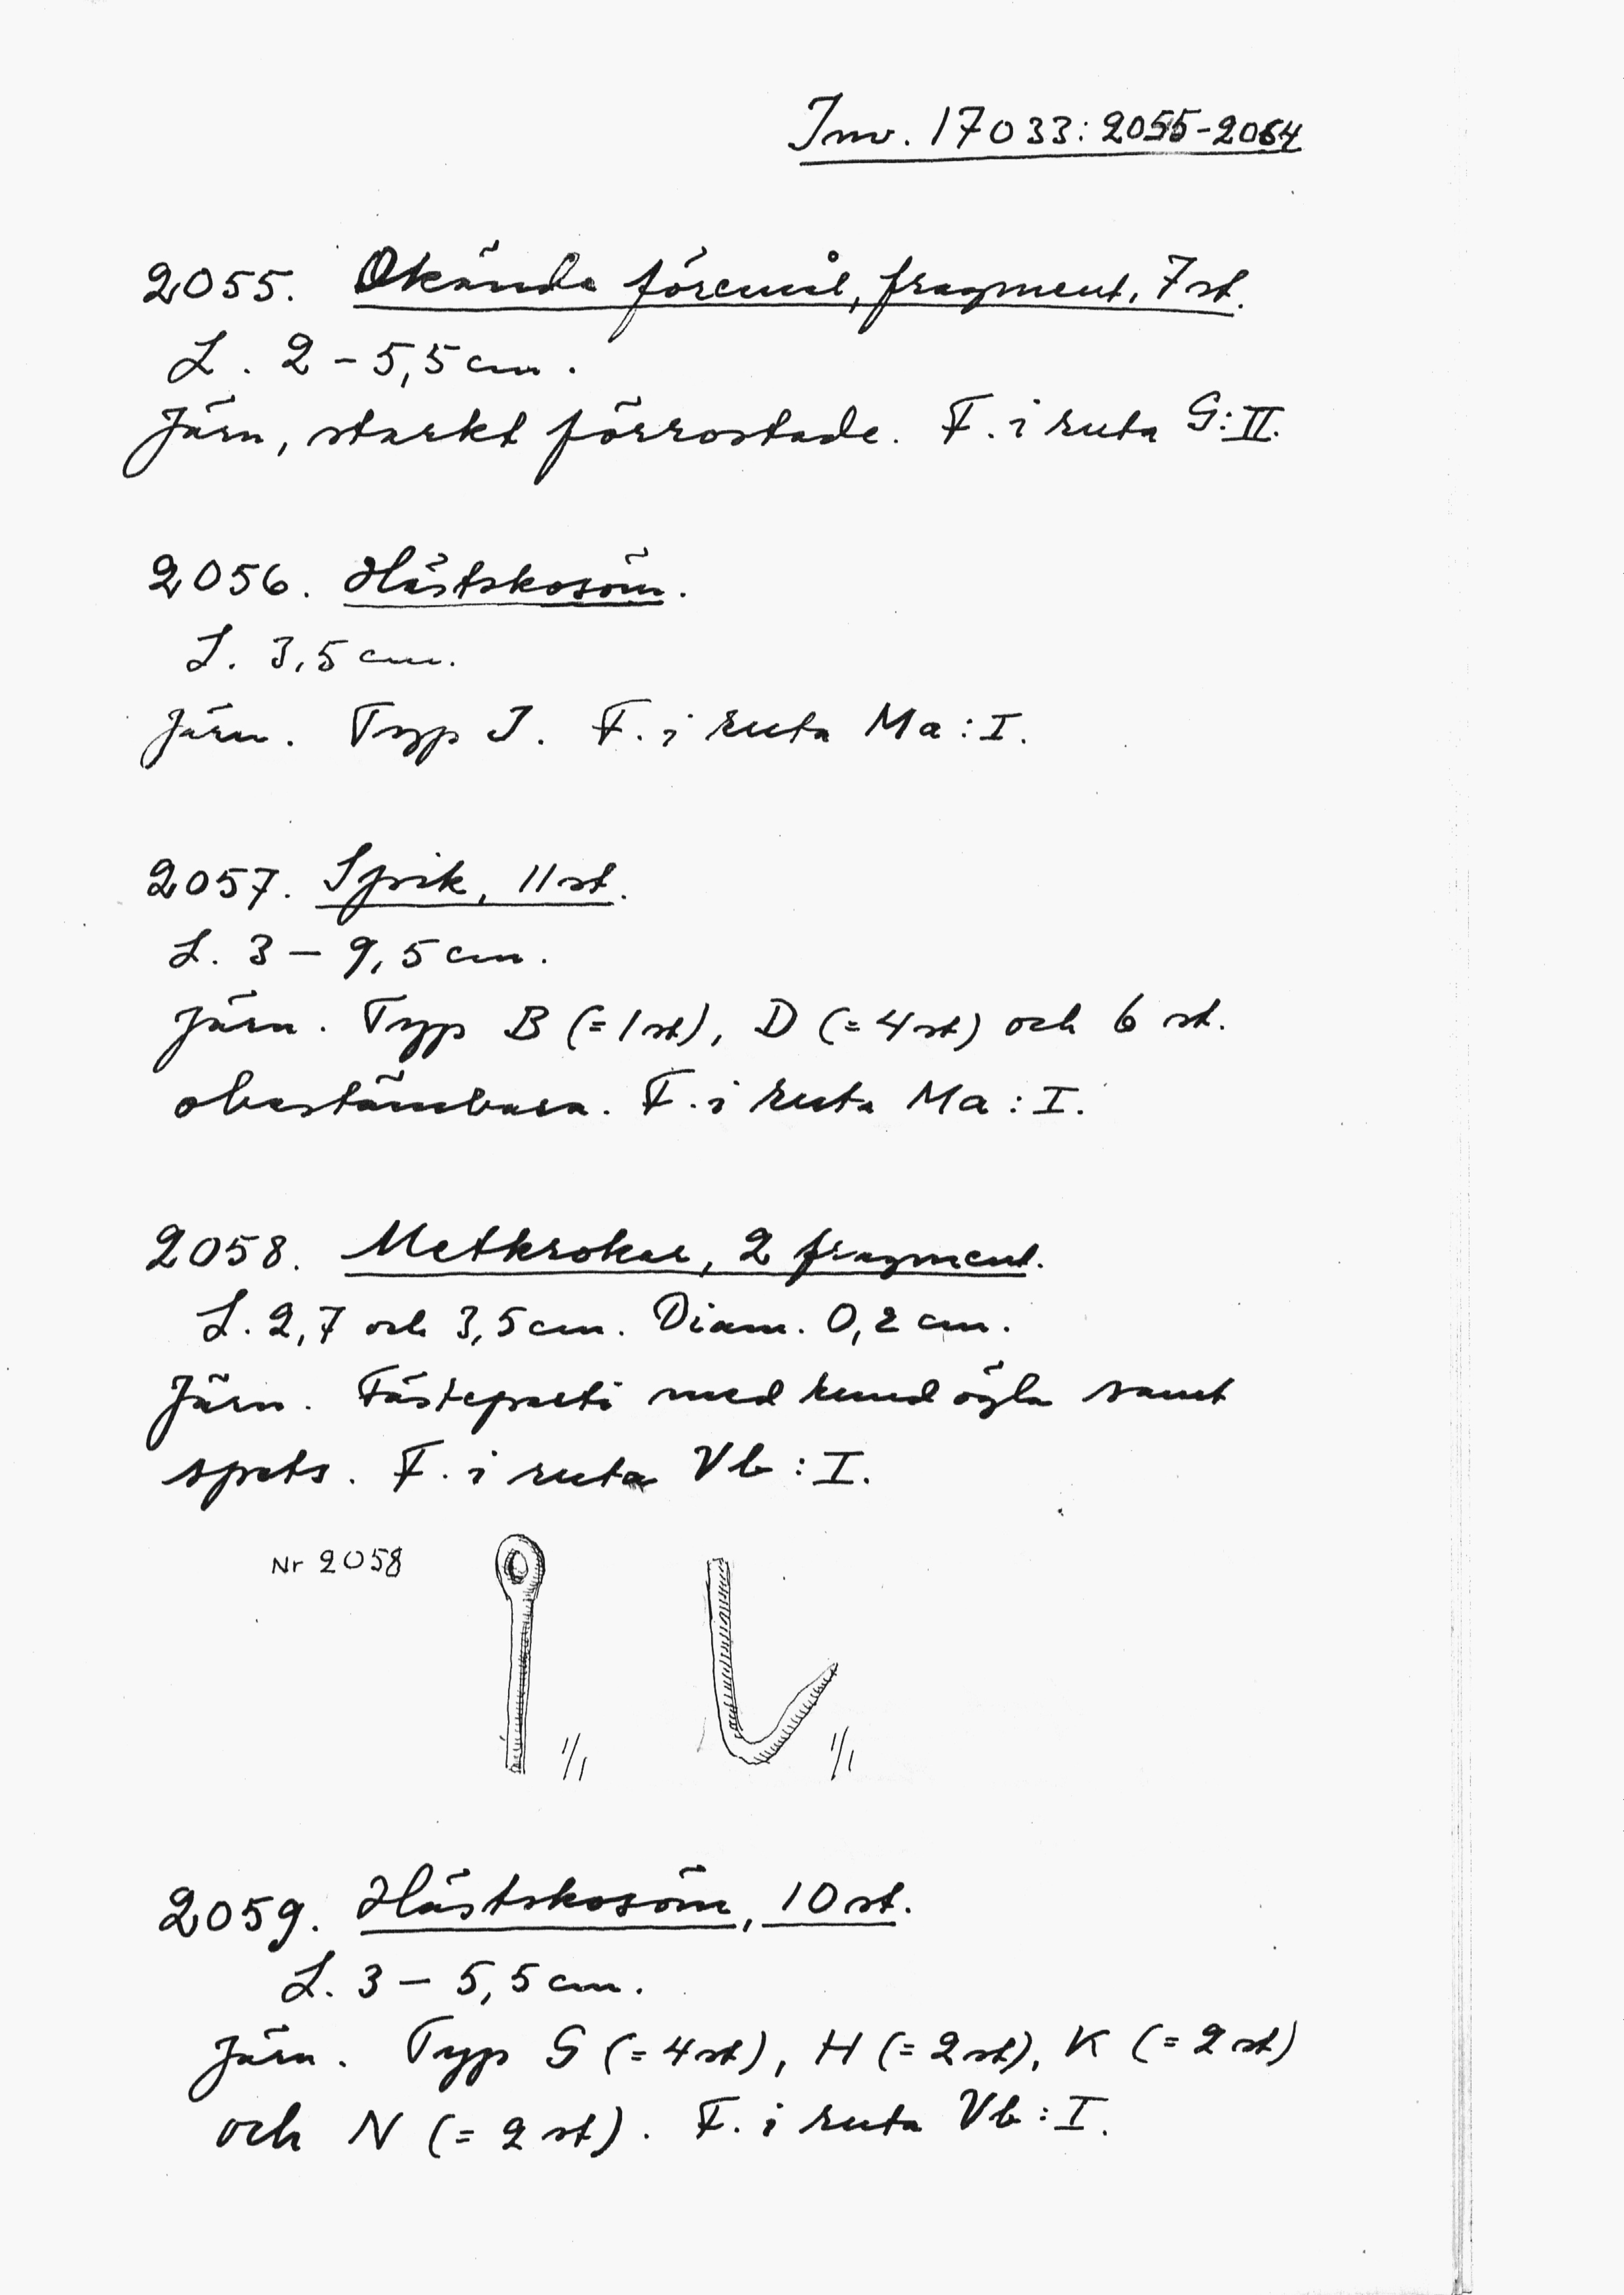 Inv. 17033:2055-2064
2055. Okända föremål, fragment, 7 st.
L. 2-5,5 cm.
Järn, starkt förrostade. F. i ruta G:II.
2056. Hästskosöm.
L. 3,5 cm.
Järn. Typ J. F. i ruta Ma:I.
2057. Spik, 11 st.
L. 3 - 9,5 cm.
Järn. Typ B (=1 st), D (=4 st) och 6 st.
obestämbara. F. i ruta Ma:I.
2058. Metkrokar, 2 fragment.
L. 2,7 och 3,5 cm. Diam. 0,2 cm.
Järn. Fästeparti med rund ögla samt
spets. F. i ruta Vb:I.
Nr 2058
1/1
1/1
2059. Hästskosöm, 10 st.
L. 3 - 5,5 cm.
Järn. Typ G (=4 st), H (=2 st), K (=2 st)
och N (=2 st). F. i ruta Vb:I.